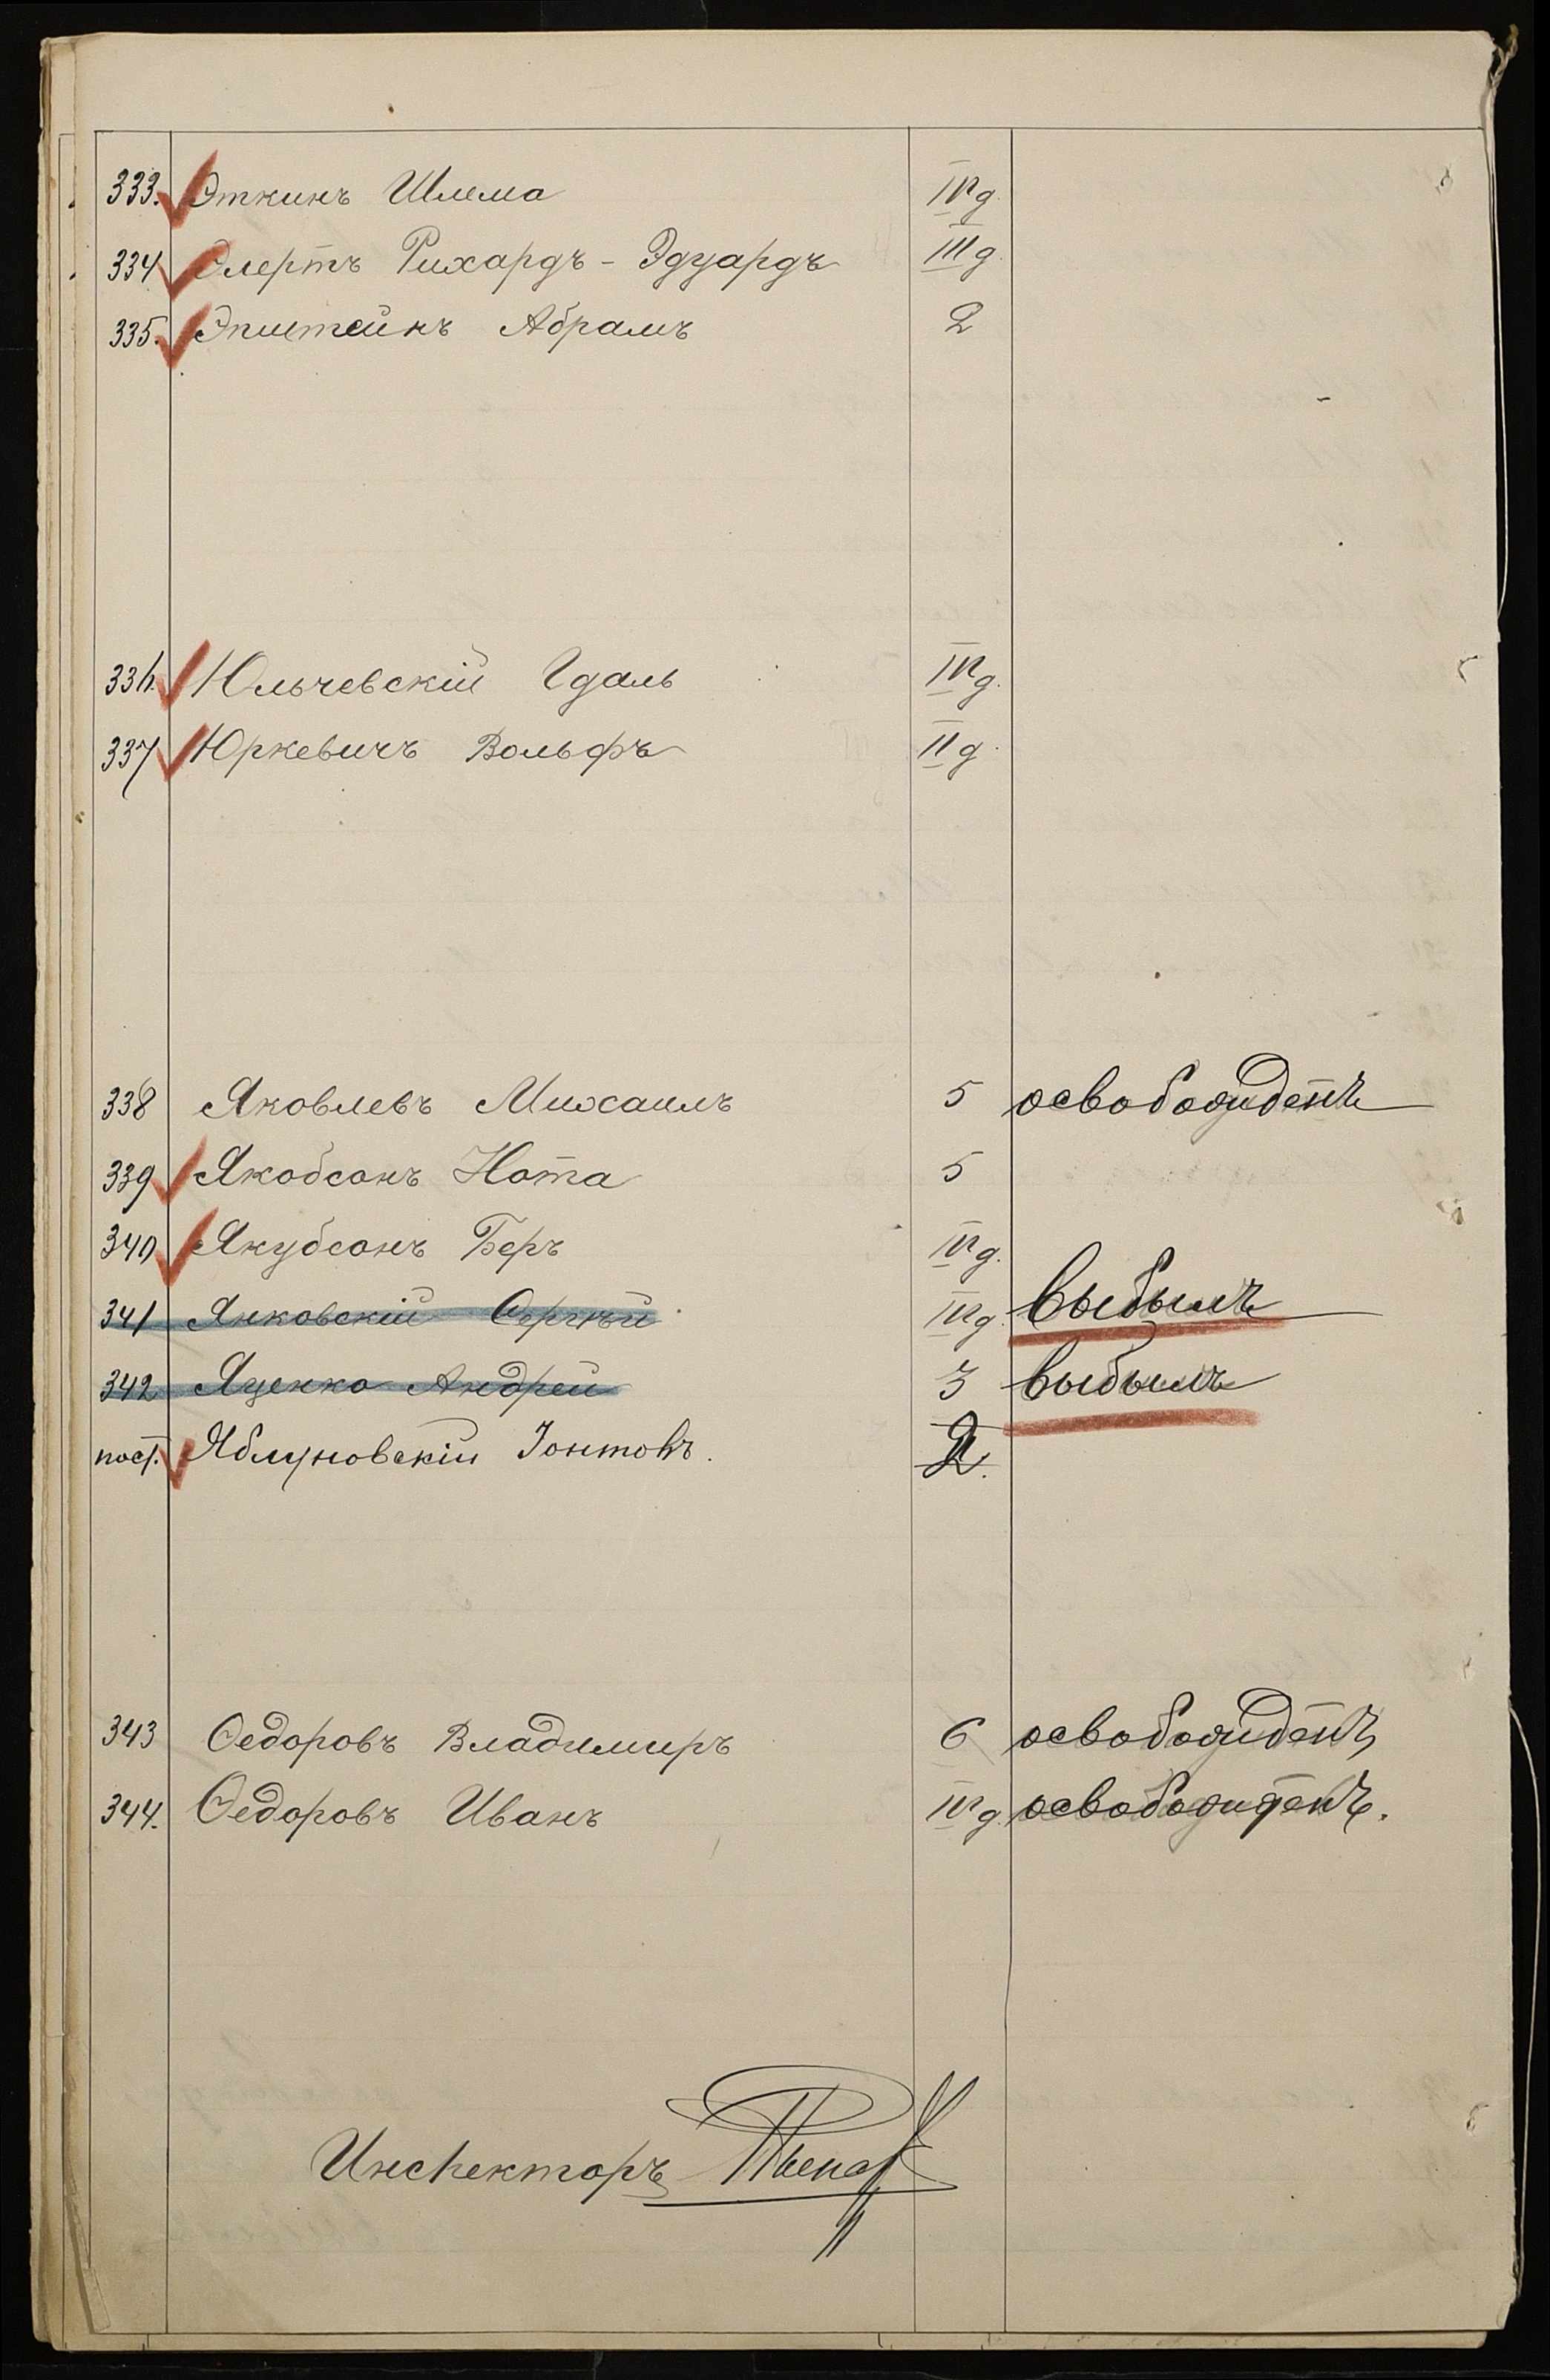 333. Эткинъ Шлема IV д.
334 Элертъ Рихардъ - Эдуардъ III д.
335. Эпштейнъ Абрамъ 2
336. Юльчевскій Гдаль IV д.
337 Юркевичъ Вольфъ II д.
338 Яковлевъ Михаилъ 5 освобожденъ
339 Якобсонъ Нота 5
340 Якубсонъ Беръ IV д.
341 Янковскій Сергѣй IV д. выбылъ
342 Яценко Андрей 3 выбылъ
пост. Яблуновскій Іонтовъ. 2.
343 Ѳедоровъ Владимиръ 6 освобожденъ
344. Ѳедоровъ Иванъ IV д. освобожденъ.
Инспекторъ